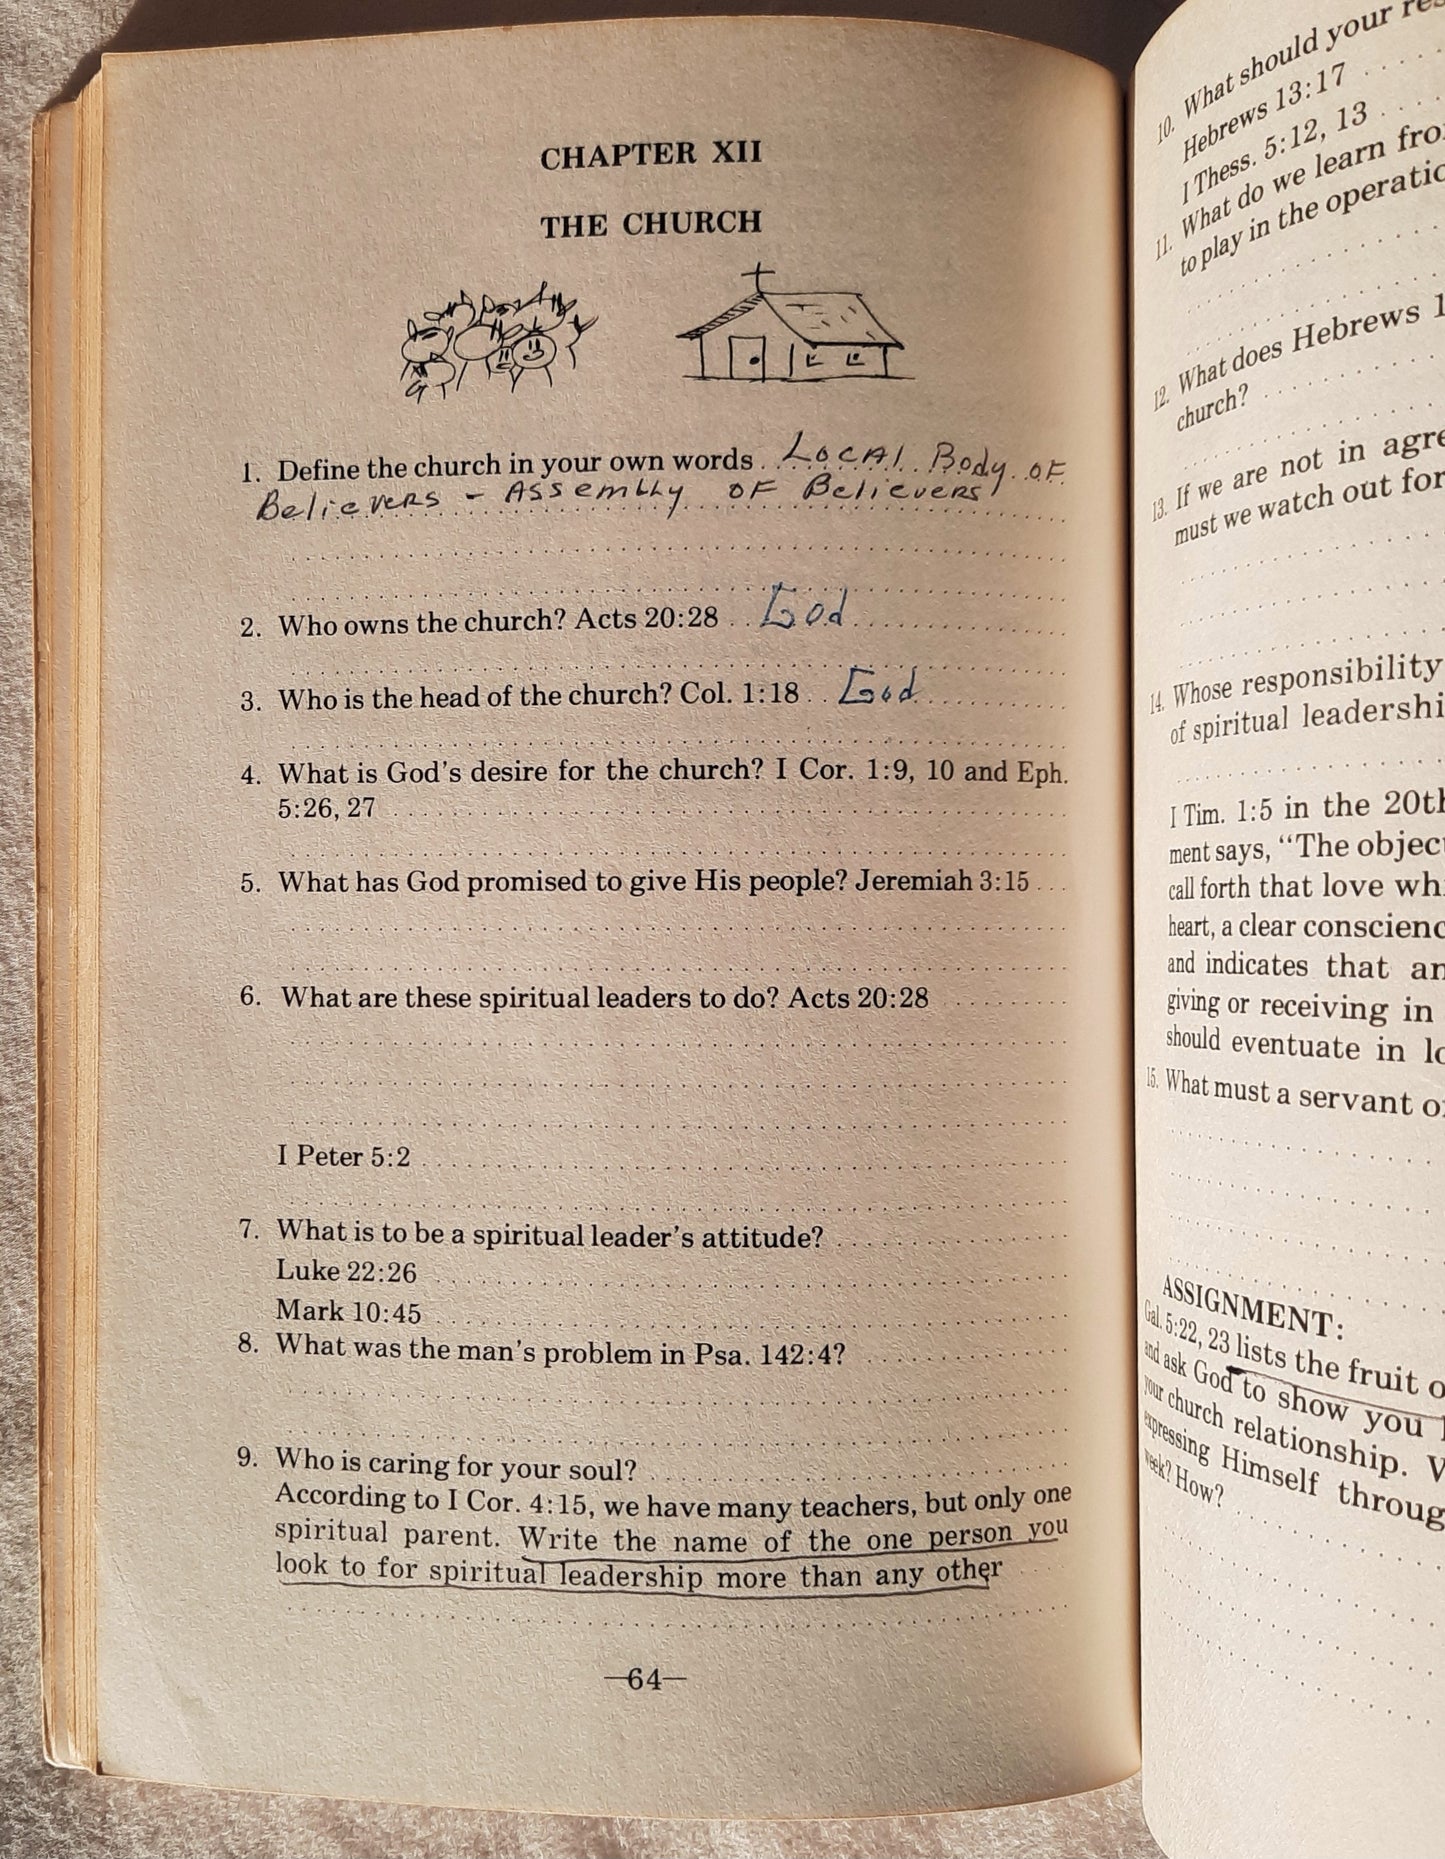 CHAPTER XII
THE CHURCH
1. Define the church in your own words Local Body of
Believers - Assembly of Believers
2. Who owns the church? Acts 20:28 God
3. Who is the head of the church? Col. 1:18 God
4. What is God's desire for the church? I Cor. 1:9, 10 and Eph.
5:26, 27
5. What has God promised to give His people? Jeremiah 3:15
6. What are these spiritual leaders to do? Acts 20:28
I Peter 5:2
7. What is to be a spiritual leader's attitude?
Luke 22:26
Mark 10:45
8. What was the man's problem in Psa. 142:4?
9. Who is caring for your soul?
According to I Cor. 4:15, we have many teachers, but only one
spiritual parent. Write the name of the one person you
look to for spiritual leadership more than any other
—64—
10. What should your
Hebrews 13:17
I Thess. 5:12, 13
11. What do we learn
to play in the
12. What does Hebrews
church?
13. If we are not in
must we watch out for
14. Whose responsibility
of spiritual
I Tim. 1:5 in the
ment says, "The
call forth that love
heart, a clear
and indicates that
giving or receiving in
should eventuate in
15. What must a servant
ASSIGNMENT:
Gal. 5:22, 23 lists the fruit
and ask God to show you
your church relationship.
expressing Himself
week? How?